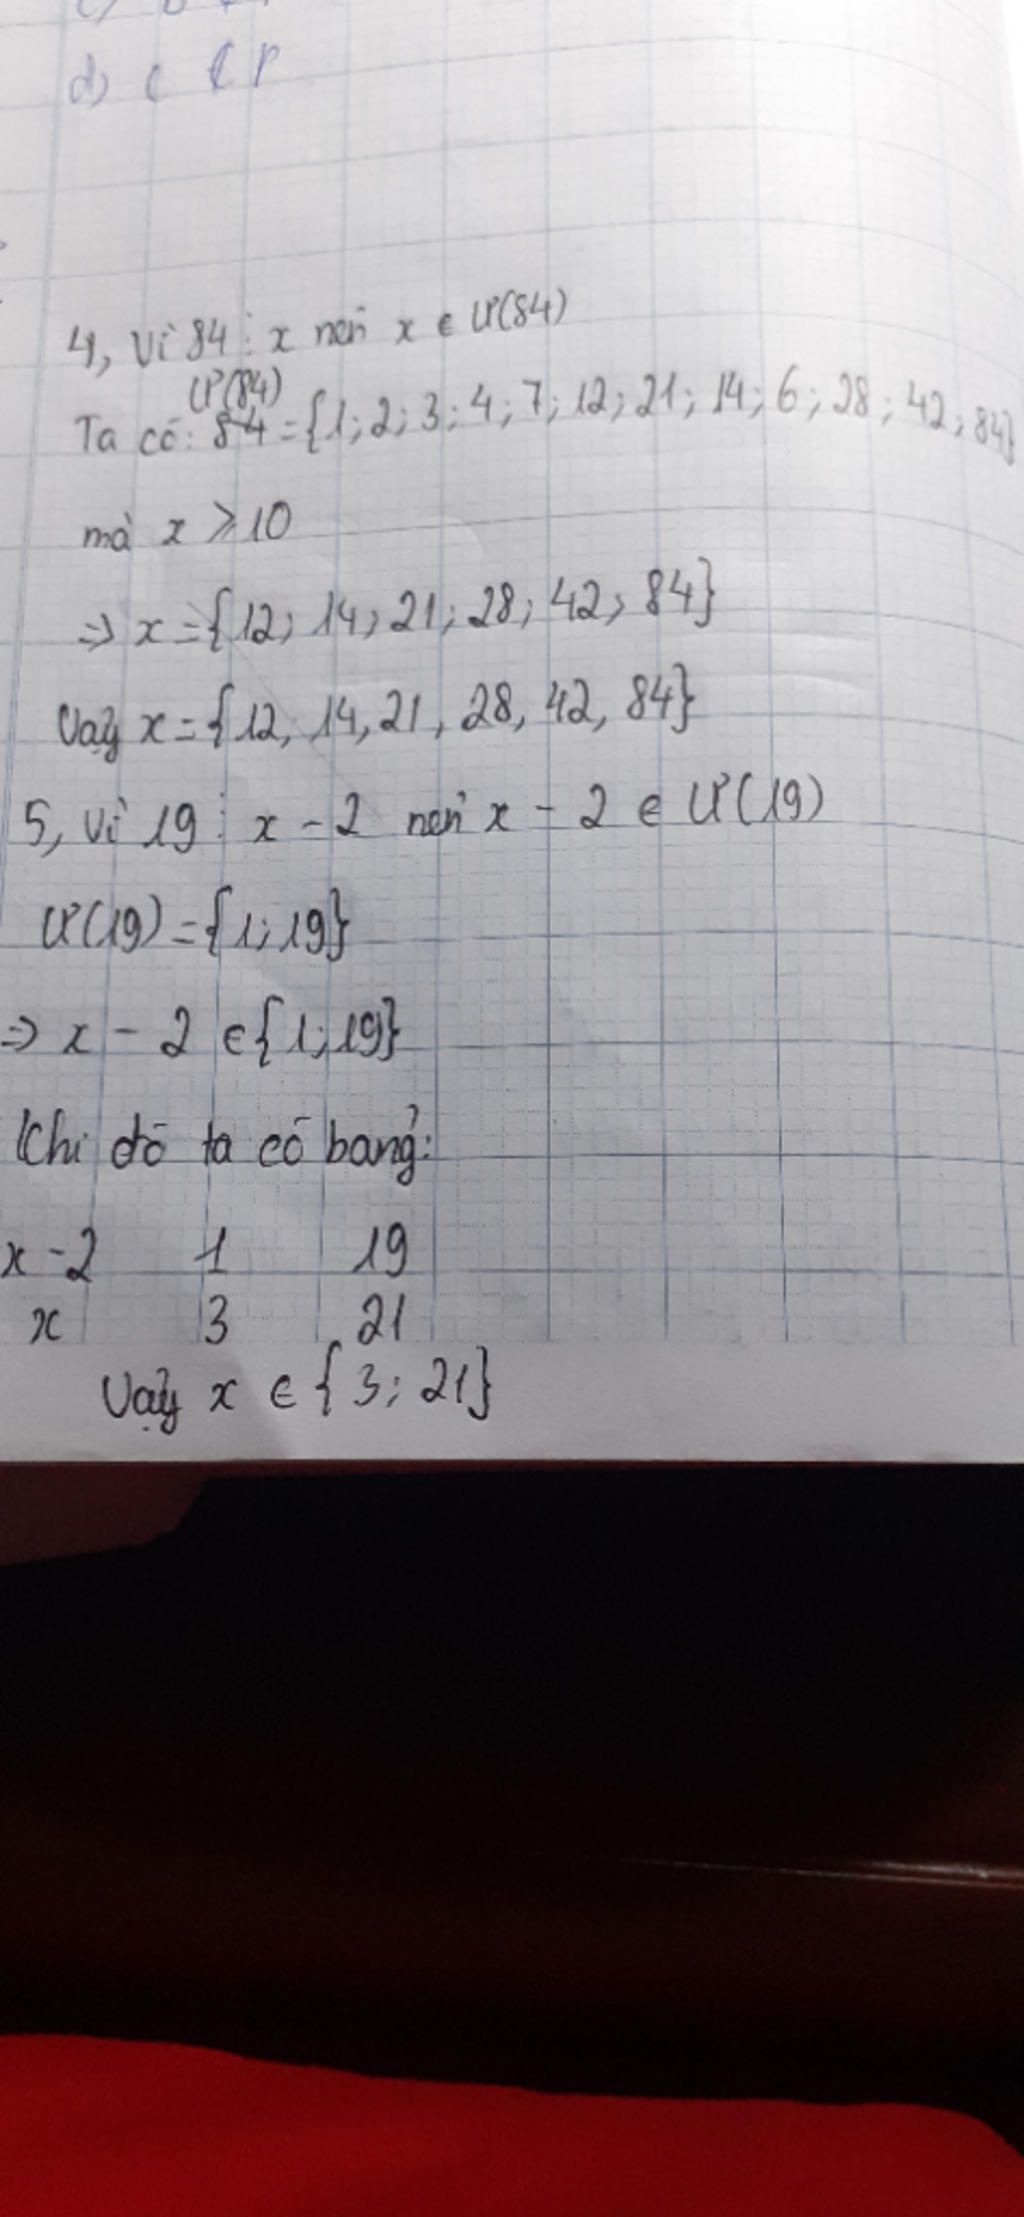 d) c ⊄ P
4, Vì 84 ⋮ x nên x ∈ Ư(84)
Ư(84)
Ta có: 84 = {1; 2; 3; 4; 7; 12; 21; 14; 6; 28; 42; 84}
mà x ⩾ 10
=> x = {12; 14; 21; 28; 42; 84}
Vậy x = {12, 14, 21, 28, 42, 84}
5, Vì 19 ⋮ x - 2 nên x - 2 ∈ Ư(19)
Ư(19) = {1; 19}
=> x - 2 ∈ {1; 19}
Khi đó ta có bảng:
x - 2 1 19
x 3 21
Vậy x ∈ {3; 21}